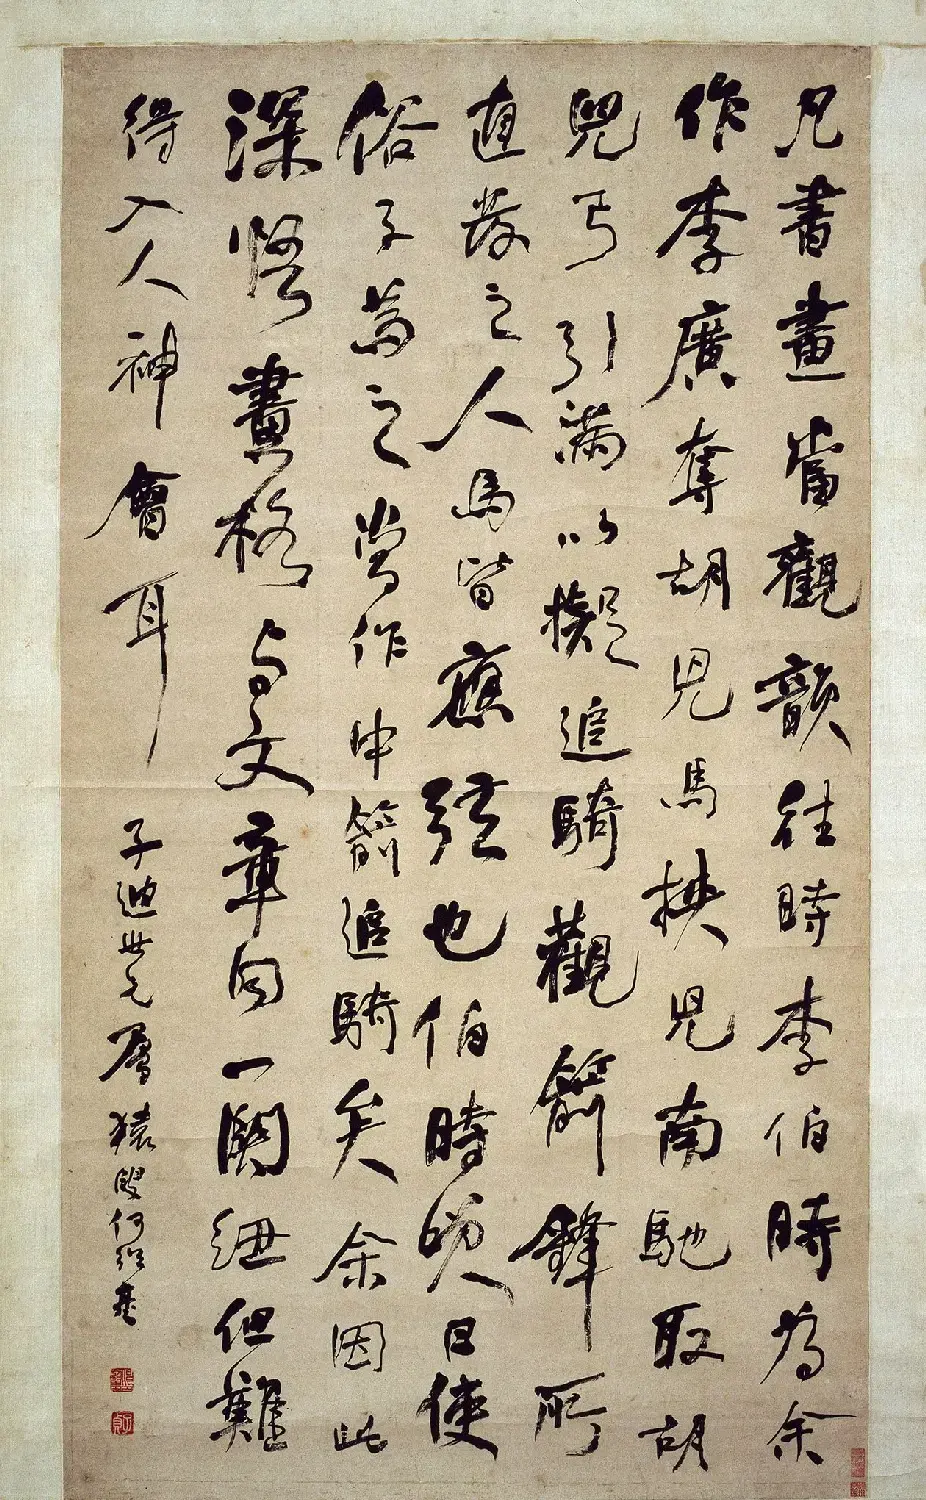 凡書畫當觀韻往時李伯時為余
作李廣奪胡兒馬挾兒南馳取胡
兒弓引滿以擬追騎觀箭鋒所
直發之人馬皆應弦也伯時笑曰使
俗子為之當作中箭追騎矣余因此
深悟畫格与文章同一關紐但難
得入人神會耳
子迪世兄屬 猿叟何紹基